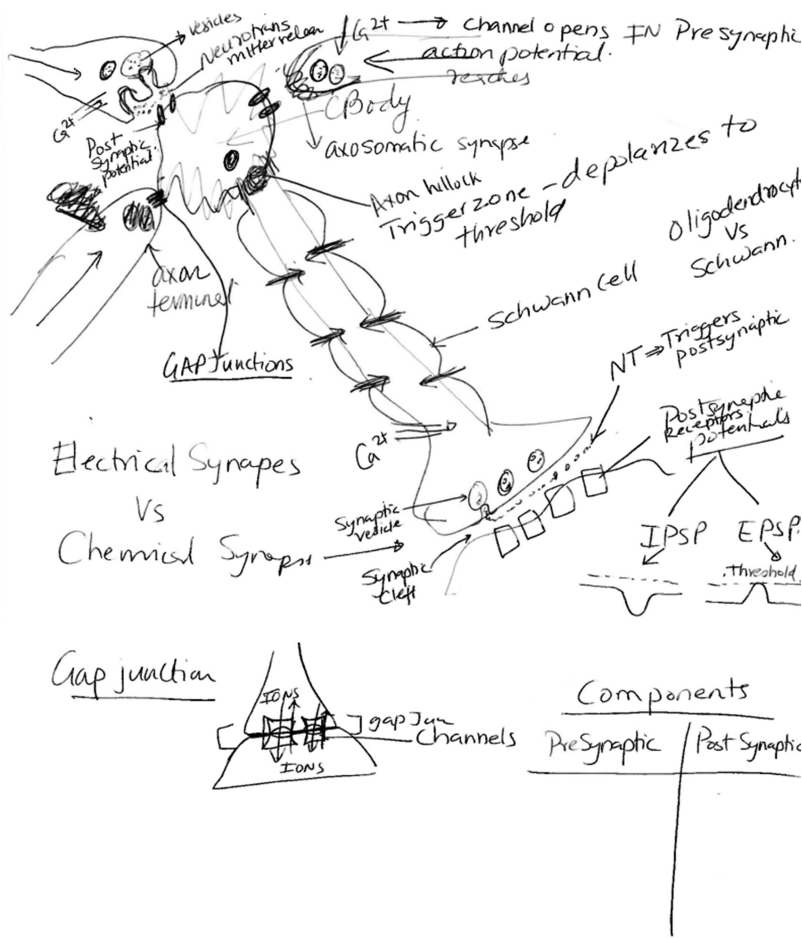 vesicles
Neurotrans
mitter release
Ca2+ → Channel opens IN Presynaptic
action potential.
reaches
Ca2+
CBody
Post
Synaptic
potential.
axosomatic synapse
Axon hillock
Triggerzone – depolarizes to
threshold
Oligodendrocyt
Vs
Schwann.
axon
terminel
Schwann Cell
GAP Junctions
NT ⇒ Triggers
postsynaptic
Postsynaptic
Receptors
potentials
Ca2+
Electrical Synapes
Vs
Chemical Synaps
Synaptic
vesicle
Synaptic
Cleft
IPSP EPSP.
.Threshold.
Gap junction
IONS
gap Jun
Channels
IONS
Components
PreSynaptic
Post Synaptic